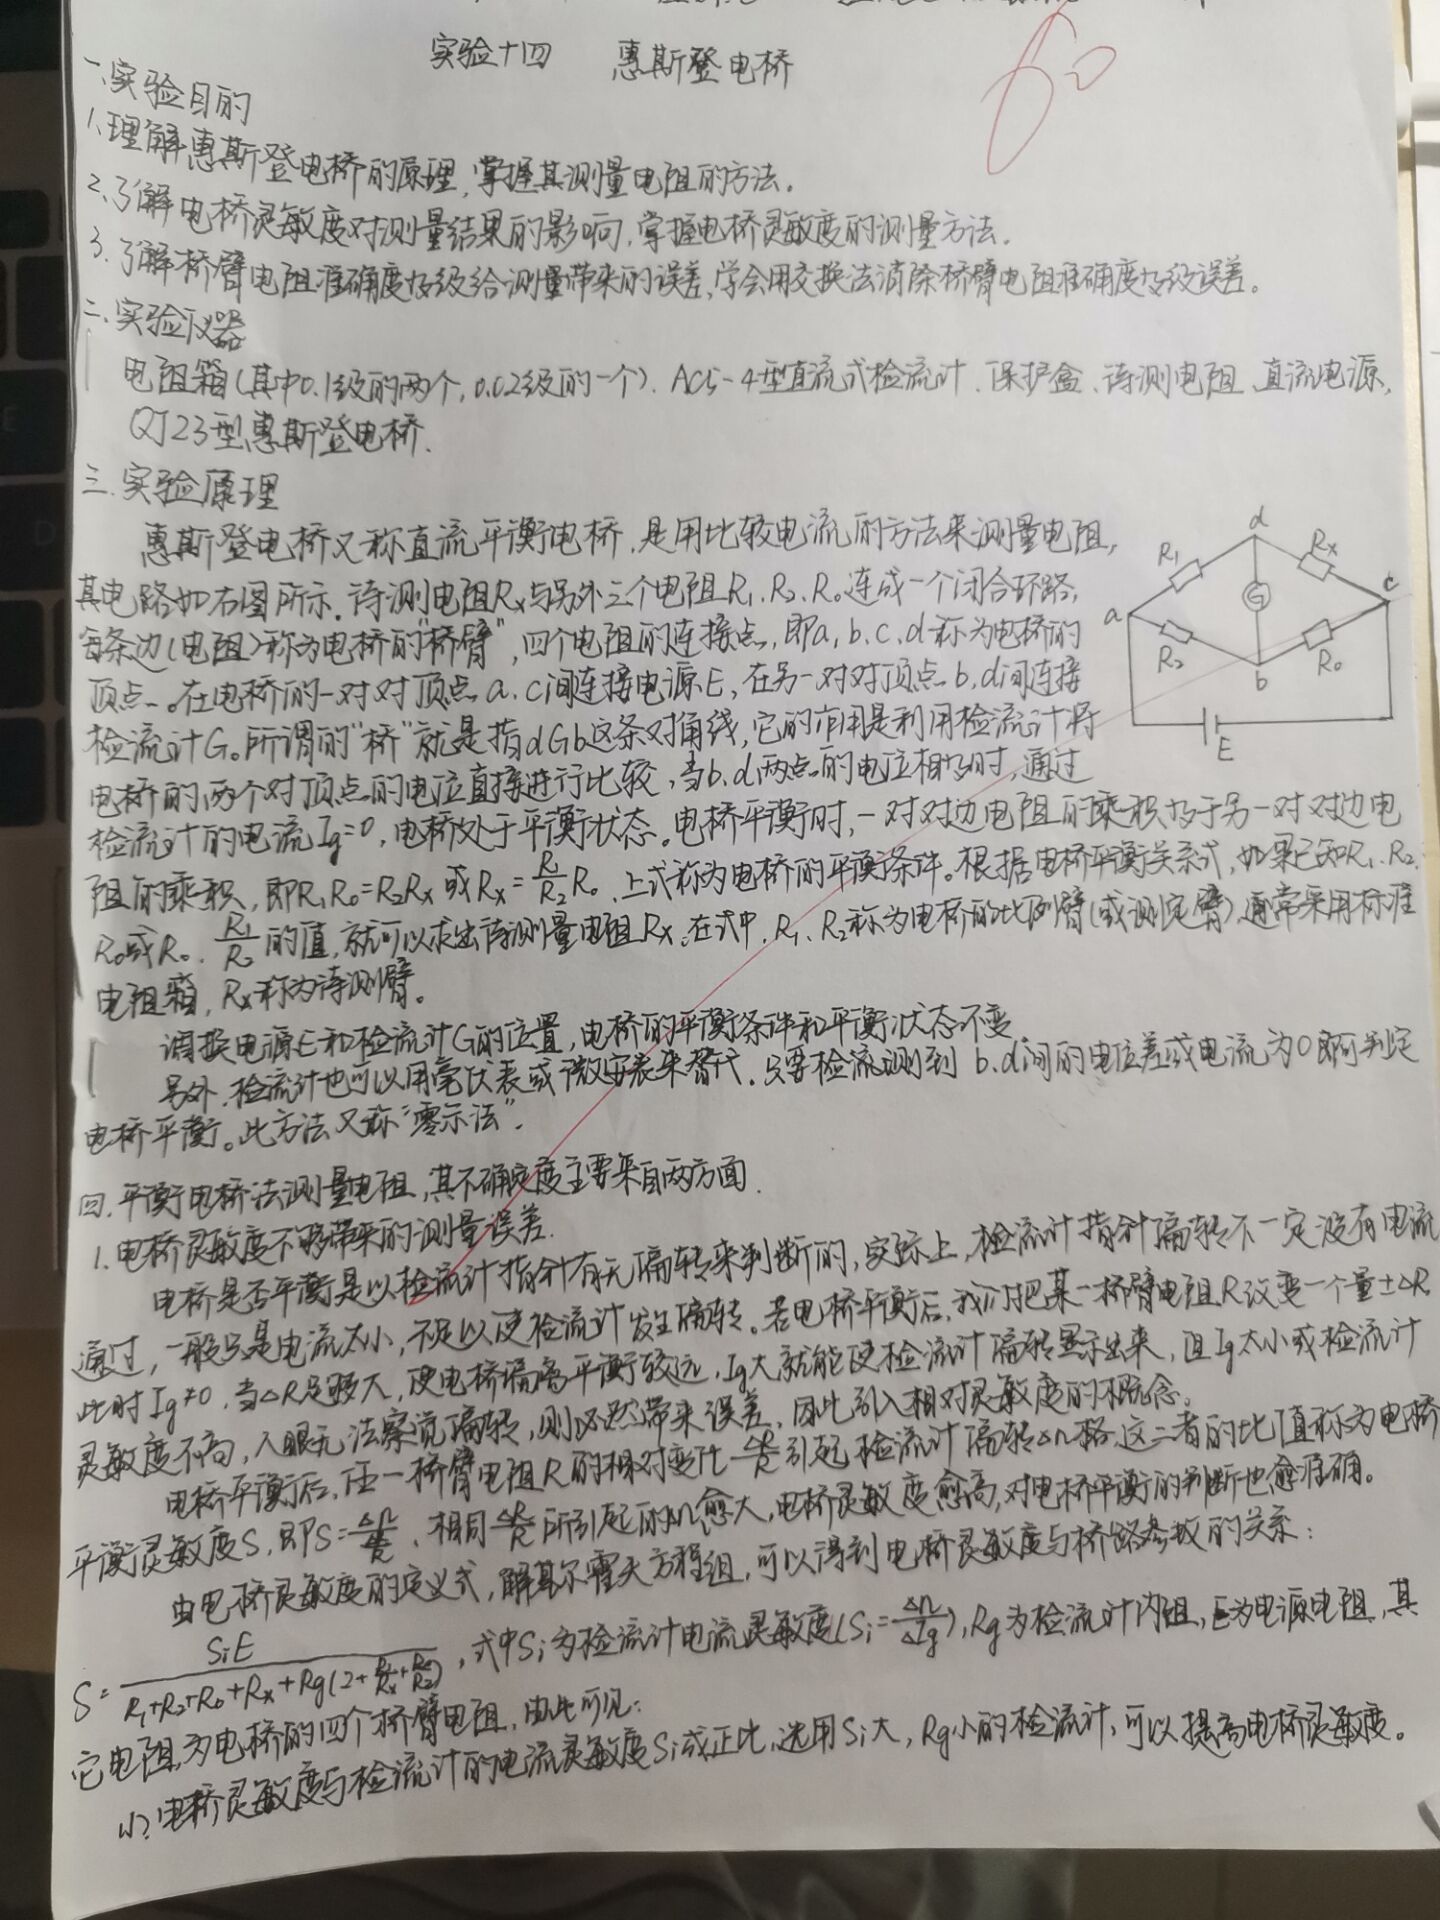 实验十四 惠斯登电桥
一、实验目的
1、理解惠斯登电桥的原理,掌握其测量电阻的方法。
2、了解电桥灵敏度对测量结果的影响,掌握电桥灵敏度的测量方法。
3、了解桥臂电阻准确度等级给测量带来的误差,学会用交换法消除桥臂电阻准确度等级误差。
二、实验仪器
电阻箱(其中0.1级的两个,0.02级的一个)、AC5-4型直流式检流计、保护盒、待测电阻、直流电源,
QJ23型惠斯登电桥.
三.实验原理
惠斯登电桥又称直流平衡电桥,是用比较电流的方法来测量电阻,
其电路如右图所示.待测电阻Rx与另外三个电阻R1、R2、R0连成一个闭合环路,
每条边(电阻)称为电桥的"桥臂",四个电阻的连接点,即a,b,c,d称为电桥的
顶点。在电桥的一对对顶点a、c间连接电源E,在另一对对顶点b,d间连接
检流计G。所谓的"桥"就是指dGb这条对角线,它的作用是利用检流计将
电桥的两个对顶点的电位直接进行比较,当b,d两点的电位相等时,通过
检流计的电流Ig=0,电桥处于平衡状态。电桥平衡时,一对对边电阻的乘积等于另一对对边电
阻的乘积,即R1R0=R2Rx或Rx=R1/R2 R0,上式称为电桥的平衡条件。根据电桥平衡关系式,如果已知R1、R2、
R0或R0、R1/R2的值,就可以求出待测量电阻Rx。在式中,R1、R2称为电桥的比例臂(或测定臂),通常采用标准
电阻箱,Rx称为待测臂。
调换电源E和检流计G的位置,电桥的平衡条件和平衡状态不变
另外,检流计也可以用毫伏表或微安表来替代.只要检流测到b、d间的电位差或电流为0即可判定
电桥平衡。此方法又称"零示法".
四.平衡电桥法测量电阻,其不确定度主要来自两方面.
1.电桥灵敏度不够带来的测量误差.
电桥是否平衡是以检流计指针有无偏转来判断的,实际上,检流计指针偏转不一定没有电流
通过,一般只是电流太小,不足以使检流计发生偏转。若电桥平衡后,我们把某一桥臂电阻R改变一个量±△R
此时Ig≠0.当△R足够大,使电桥偏离平衡较远,Ig大就能使检流计偏转显示出来,但Ig太小或检流计
灵敏度不高,人眼无法察觉偏转,则必然带来误差,因此引入相对灵敏度的概念。
电桥平衡后,任一桥臂电阻R的相对变化△R/R引起检流计偏转△n格,这二者的比值称为电桥
平衡灵敏度S,即S=△n/(△R/R).相同△R/R所引起的△n愈大,电桥灵敏度愈高,对电桥平衡的判断也愈准确。
由电桥灵敏度的定义式,解基尔霍夫方程组,可以得到电桥灵敏度与桥路参数的关系:
S=SiE/(R1+R2+R0+Rx+Rg(2+R1/Rx+R0/R2)),式中Si为检流计电流灵敏度(Si=△n/△Ig),Rg为检流计内阻,E为电源电阻,其
它电阻为电桥的四个桥臂电阻,由此可见:
(1)电桥灵敏度与检流计的电流灵敏度Si成正比,选用Si大,Rg小的检流计,可以提高电桥灵敏度。
d
R1
Rx
a
G
c
R2
R0
b
E